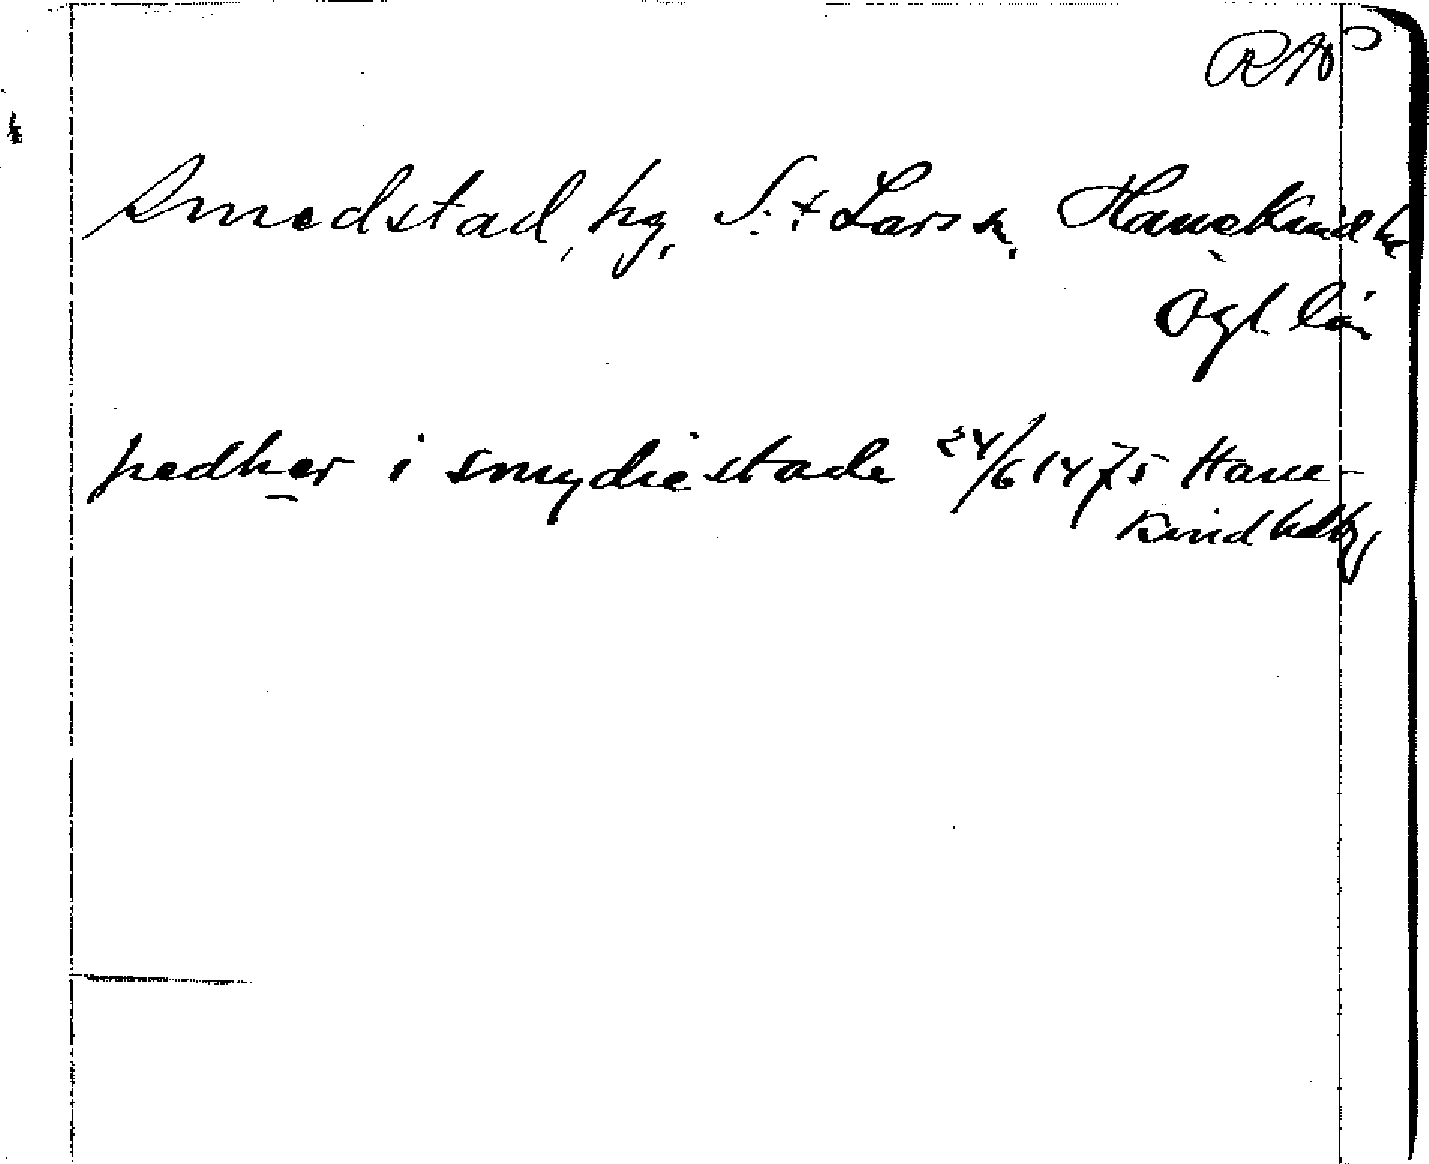 RAP
Smedstad, hg, S:t Lars sn, Hanekinds h
Ögl. län
pedher i smydiestade 24/6 1475 Hane-
kind hdby